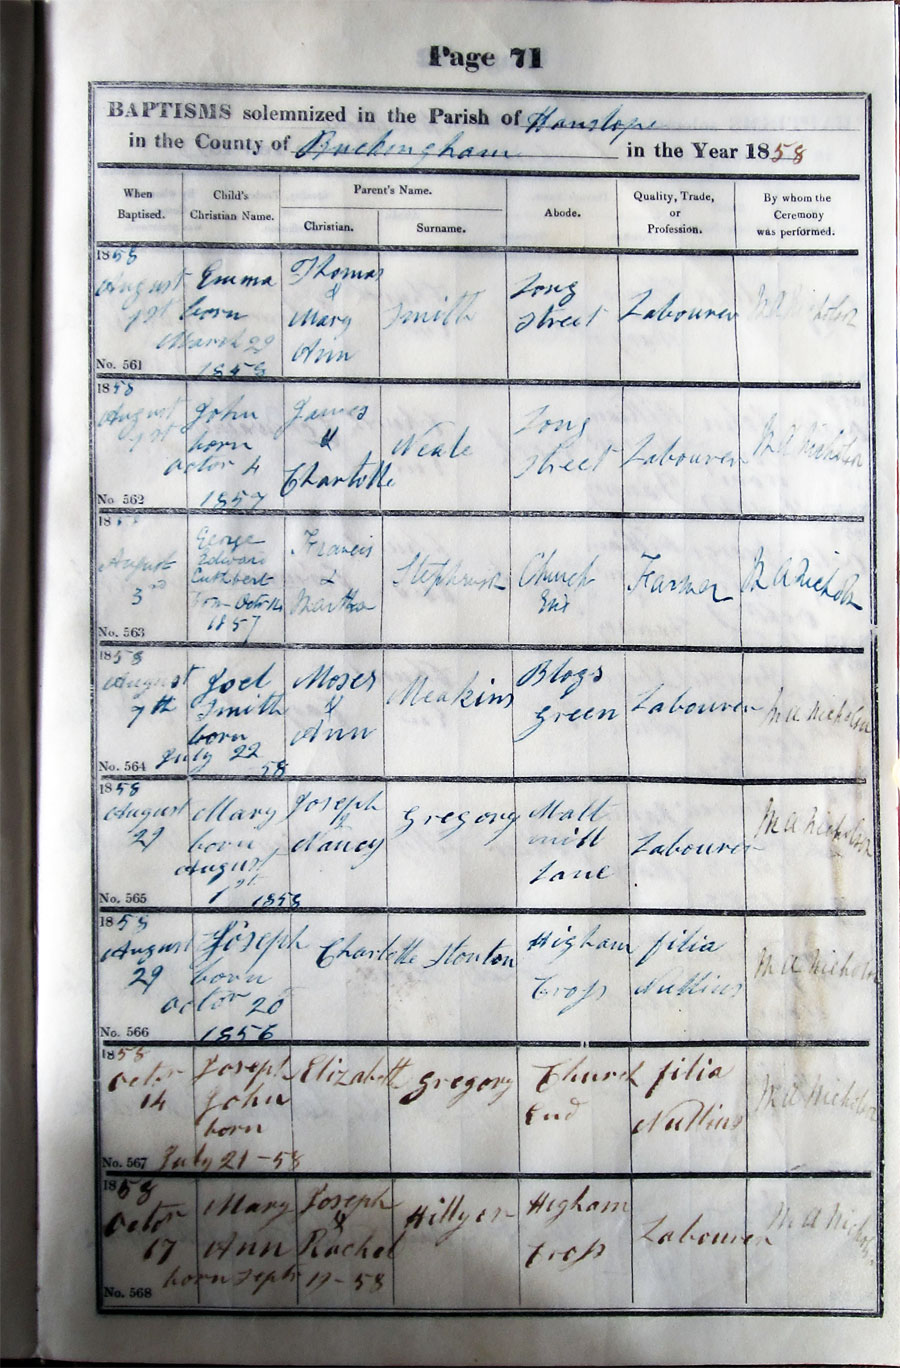 Page 71
BAPTISMS solemnized in the Parish of Hanslope
in the County of Buckingham in the Year 1858
When Baptised.
Child's Christian Name.
Parent's Name.
Christian.
Surname.
Abode.
Quality, Trade, or Profession.
By whom the Ceremony was performed.
1858
August
1st
No. 561
Emma
born
March 29
1858
Thomas
&
Mary
Ann
Smith
Long
Street
Labourer
M A Nicholson
1858
August
1st
No. 562
John
born
Octor 4
1857
James
&
Charlotte
Neale
Long
Street
Labourer
M A Nicholson
18
August
3rd
No. 563
George
Edward
Cuthbert
born Octr 14
1857
Francis
&
Martha
Church
End
Farmer
M A Nicholson
1858
August
7th
No. 564
Joel
Smith
born
July 22
58
Moses
&
Ann
Meakins
Blogs
Green
Labourer
M A Nicholson
1858
August
29
No. 565
Mary
born
August
1st 1858
Joseph
&
Nancy
Gregory
Malt
mill
Lane
Labourer
M A Nicholson
1858
August
29
No. 566
Joseph
born
Octor 20
1856
Charlotte
Stonton
Higham
Cross
filia
Nullius
M A Nicholson
1858
Octor
14
No. 567
Joseph
John
born
July 21-58
Elizabeth
Gregory
Church
End
filia
Nullius
M A Nicholson
1858
Octor
17
No. 568
Mary
Ann
born Septr 19-58
Joseph
&
Rachel
Hillyer
Higham
Cross
Labourer
M A Nicholson